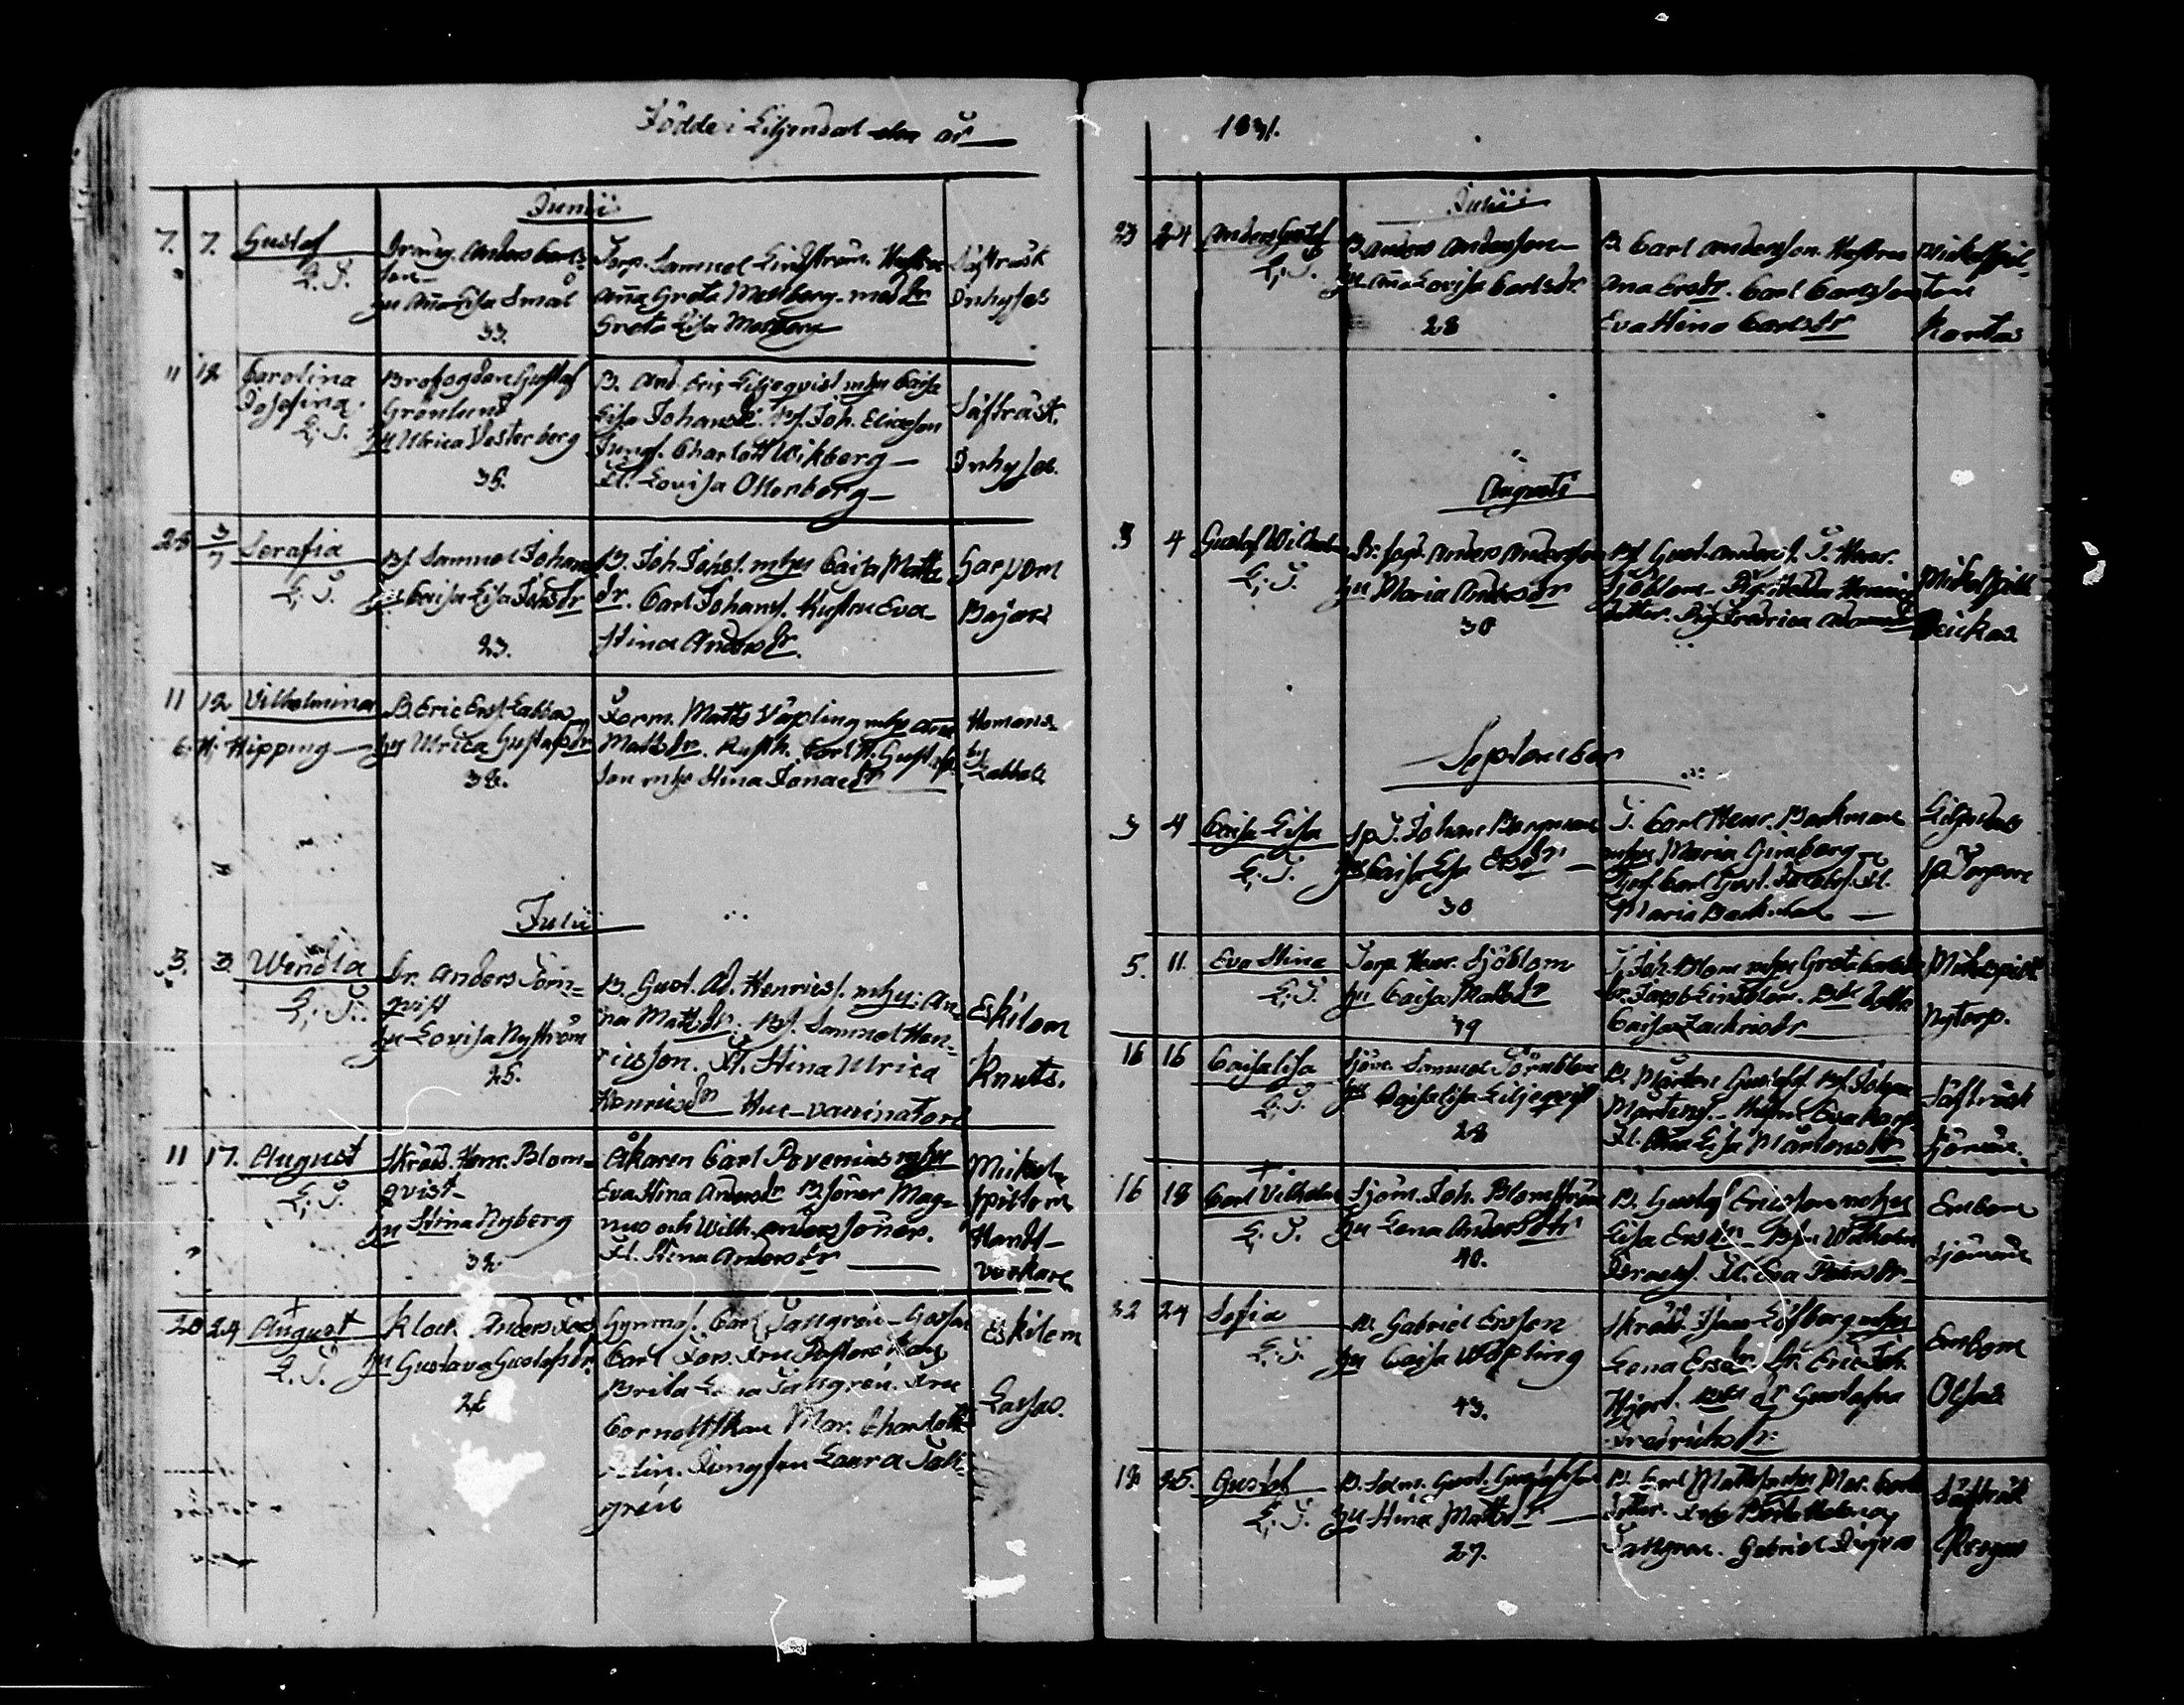 Födde i Liljendal år
Junii
7. 7. Gustaf
L. T.
Dräng. Anders Carls-
son
hu Anna Lisa Smal
33.
Torp. Samuel Lindström. Hustru
Anna Greta Mossberg. med dr
Greta Lisa
Säfträsk
Inhyses
11 12 Carolina
Josefina.
L. T.
Brofogden Gustaf
Grönlund
hu Ulrica Vesterberg
35.
B. And. Eric Liljeqvist mhu Caisa
Lisa Johansdr. Bs. Joh. Ericsson
Jungf. Charlott Wikberg
Fl. Lovisa Ottenberg
Säfträsk.
Inhyses.
28 3/7 Serafia
L. T.
Bs Samuel Johans
hu Caisa Lisa Johsdr
23.
B. Joh. Johss. mhu Caisa Matts
dr. Carl Johanss. Hustru Eva
Stina Andersdr.
Garpom
Bajars
11 12 Vilhelmina
C. H. Hipping
B. Eric Erss. Labba
hu Ulrica Gustafsdr
38.
Torm. Matts Väpling mhu Anna
Mattsdr. Rusth. Carl H. Gustafs-
son mhu Stina Jonaedr
Homans-
by
Labbas
Julii
3. 3. Wendla
L. T.
Dr. Anders Törn-
qvist
hu Lovisa Nyström
25.
B. Gust. Ad. Henricss. mhu An-
na Mattsdr. Bs. Samuel Hen-
ricsson. Fl. Stina Ulrica
Henricsdr
Eskilom
Knuts.
11 17. August
L. T.
Skrädd. Henr. Blom-
qvist
hu Stina Nyberg
32.
Åkaren Carl Povenius mhu
Eva Stina Andersdr Bsöner Mag-
nus och Wilh. Anderssöner.
Fl. Stina Andersdr
Mickels-
piltom
Handt-
verkare
20 24 August
L. T.
Klock. Anders Fors
hu Gustava Gustafsdr.
28
Gymnas. Carl Tallgrén
Carl Fors. Fru
Brita Lena Tallgrén. Fru
Cornettskan Mar. Charlotta
Jungfru Laura Tall-
grén
Eskilom
Lassas.
1831.
Julii
23 24 Anders Gustaf
L. T.
B. Anders Andersson
hu Anna Lovisa Carlsdr.
28
B. Carl Andersson. Hustru
Ana Ersdr. Carl Carlsson
Eva Stina Carlsdr
Mickelspil-
tom
Kortas
Augusti
3 4 Gustaf Wilhelm
L. T.
Br. fogd. Anders Andersson
hu Maria Andersdr
30
Bs Gust. Anders. T. Henr.
Sjöblom
Mickelspilt
September
3 4 Caisa Lisa
L. T.
Sp. T. Johan Bergman
hu Caisa Lisa Ersdr
30
T. Carl Henr. Backman
mhu Maria Grönberg
Maria Backman
Liljendal
Sp. Torpare
5. 11. Eva Stina
L. T.
Torp. Henr. Sjöblom
hu Caisa Mattsdr
39
T. Joh. Blom mhu Greta Carls
dr. Jacob Lindblom.
Caisa Zachrisdr
Mickelspilt
Nytorp.
16 16 Caisa Lisa
L. T.
Sjöm. Samuel Törnblom
hu Caisa Lisa Liljeqvist
28
B. Mårten Gustafss. Bs. Johan
Mårtenss. Hustru Eva
Fl. Anna Lisa Mårtensdr
Säfträsk
Sjöman.
16 18 Carl Vilhelm
L. T.
Sjöm. Joh. Blomström
hu Lena Andersdtr
40.
B. Gustaf Ericsson mhu
Lisa Ersdr. Bson Wilhelm
Fl. Eva
Embom
Sjöman
22 24 Sofia
L. T.
B. Gabriel Ersson
hu Caisa Wäpling
43.
Skrädd. Löfberg mhu
Lena Ersdr. Dr. Eric Joh.
Hjort. Gustafva
Fredricksdr
Embom
Olsas
19 25. Gustaf
L. T.
B. Gust. Gustafsson
hu Stina Mattsdr
27.
B. Carl Mattsson mhu Mar. Carls
dotter. Brita Helena
Tallgren. Gabriel
Säfträsk